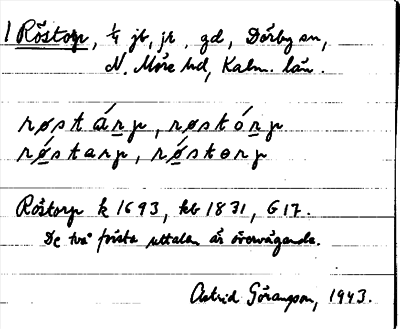 1 Röstorp, ¼ jb, jr, gd, Dörby sn,
N. Möre hd, Kalm. län.
røstárp, røstórp
røstarp, røstorp
Röstorp k 1693, kb 1831, G17.
De två första uttalen är övervägande.
Astrid Göransson, 1943.